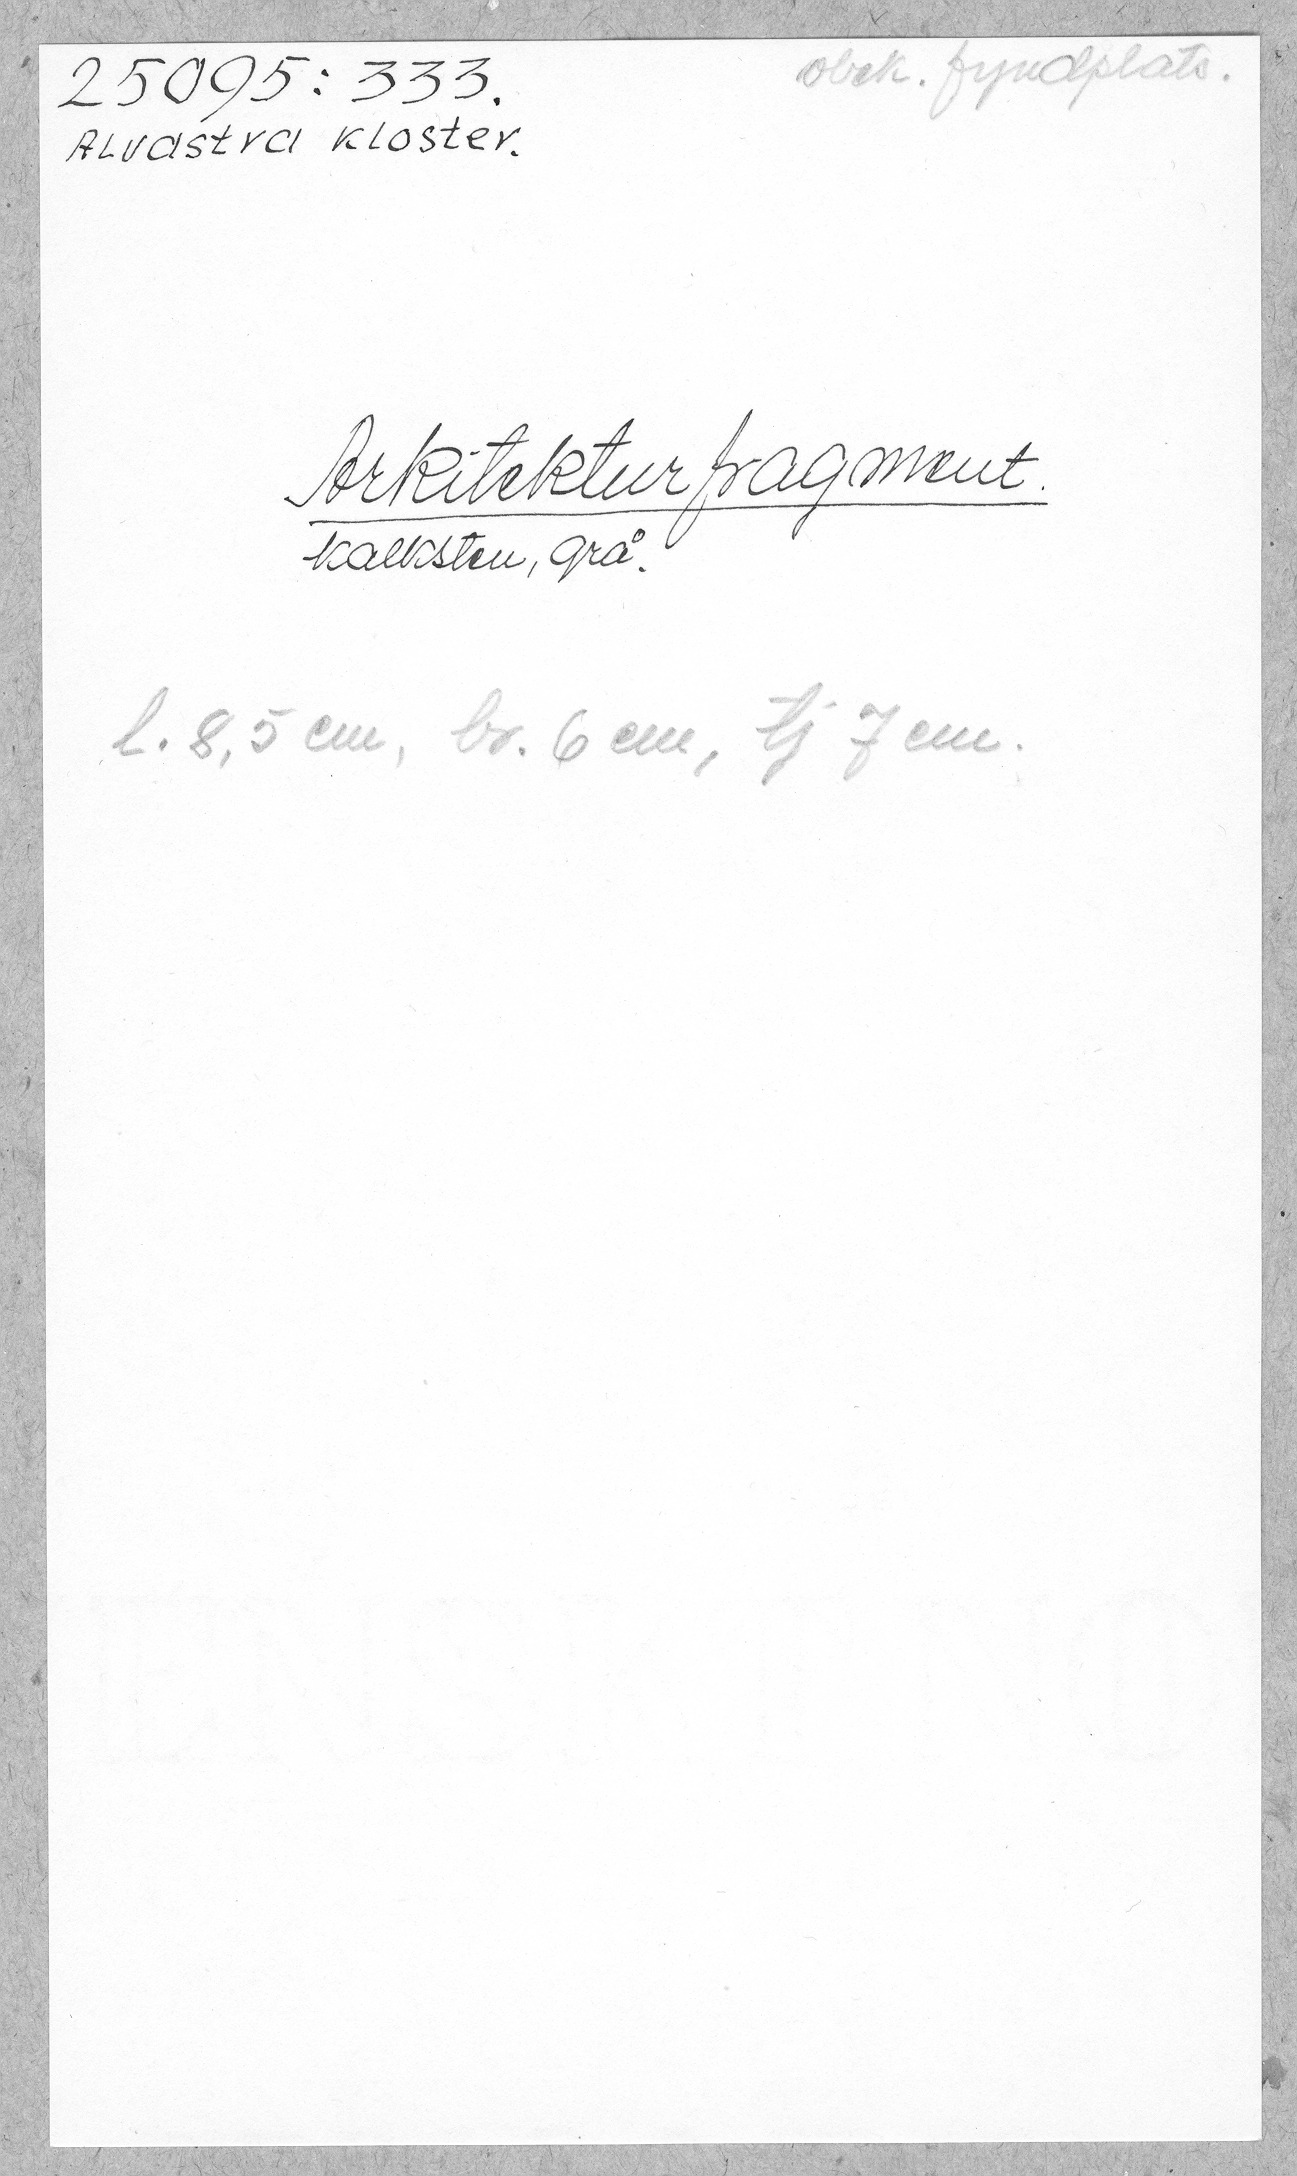 25095: 333.
obek. fyndplats.
Alvastra kloster.
Arkitekturfragment.
kalksten, grå.
l. 8,5 cm, br. 6 cm, tj 7 cm.